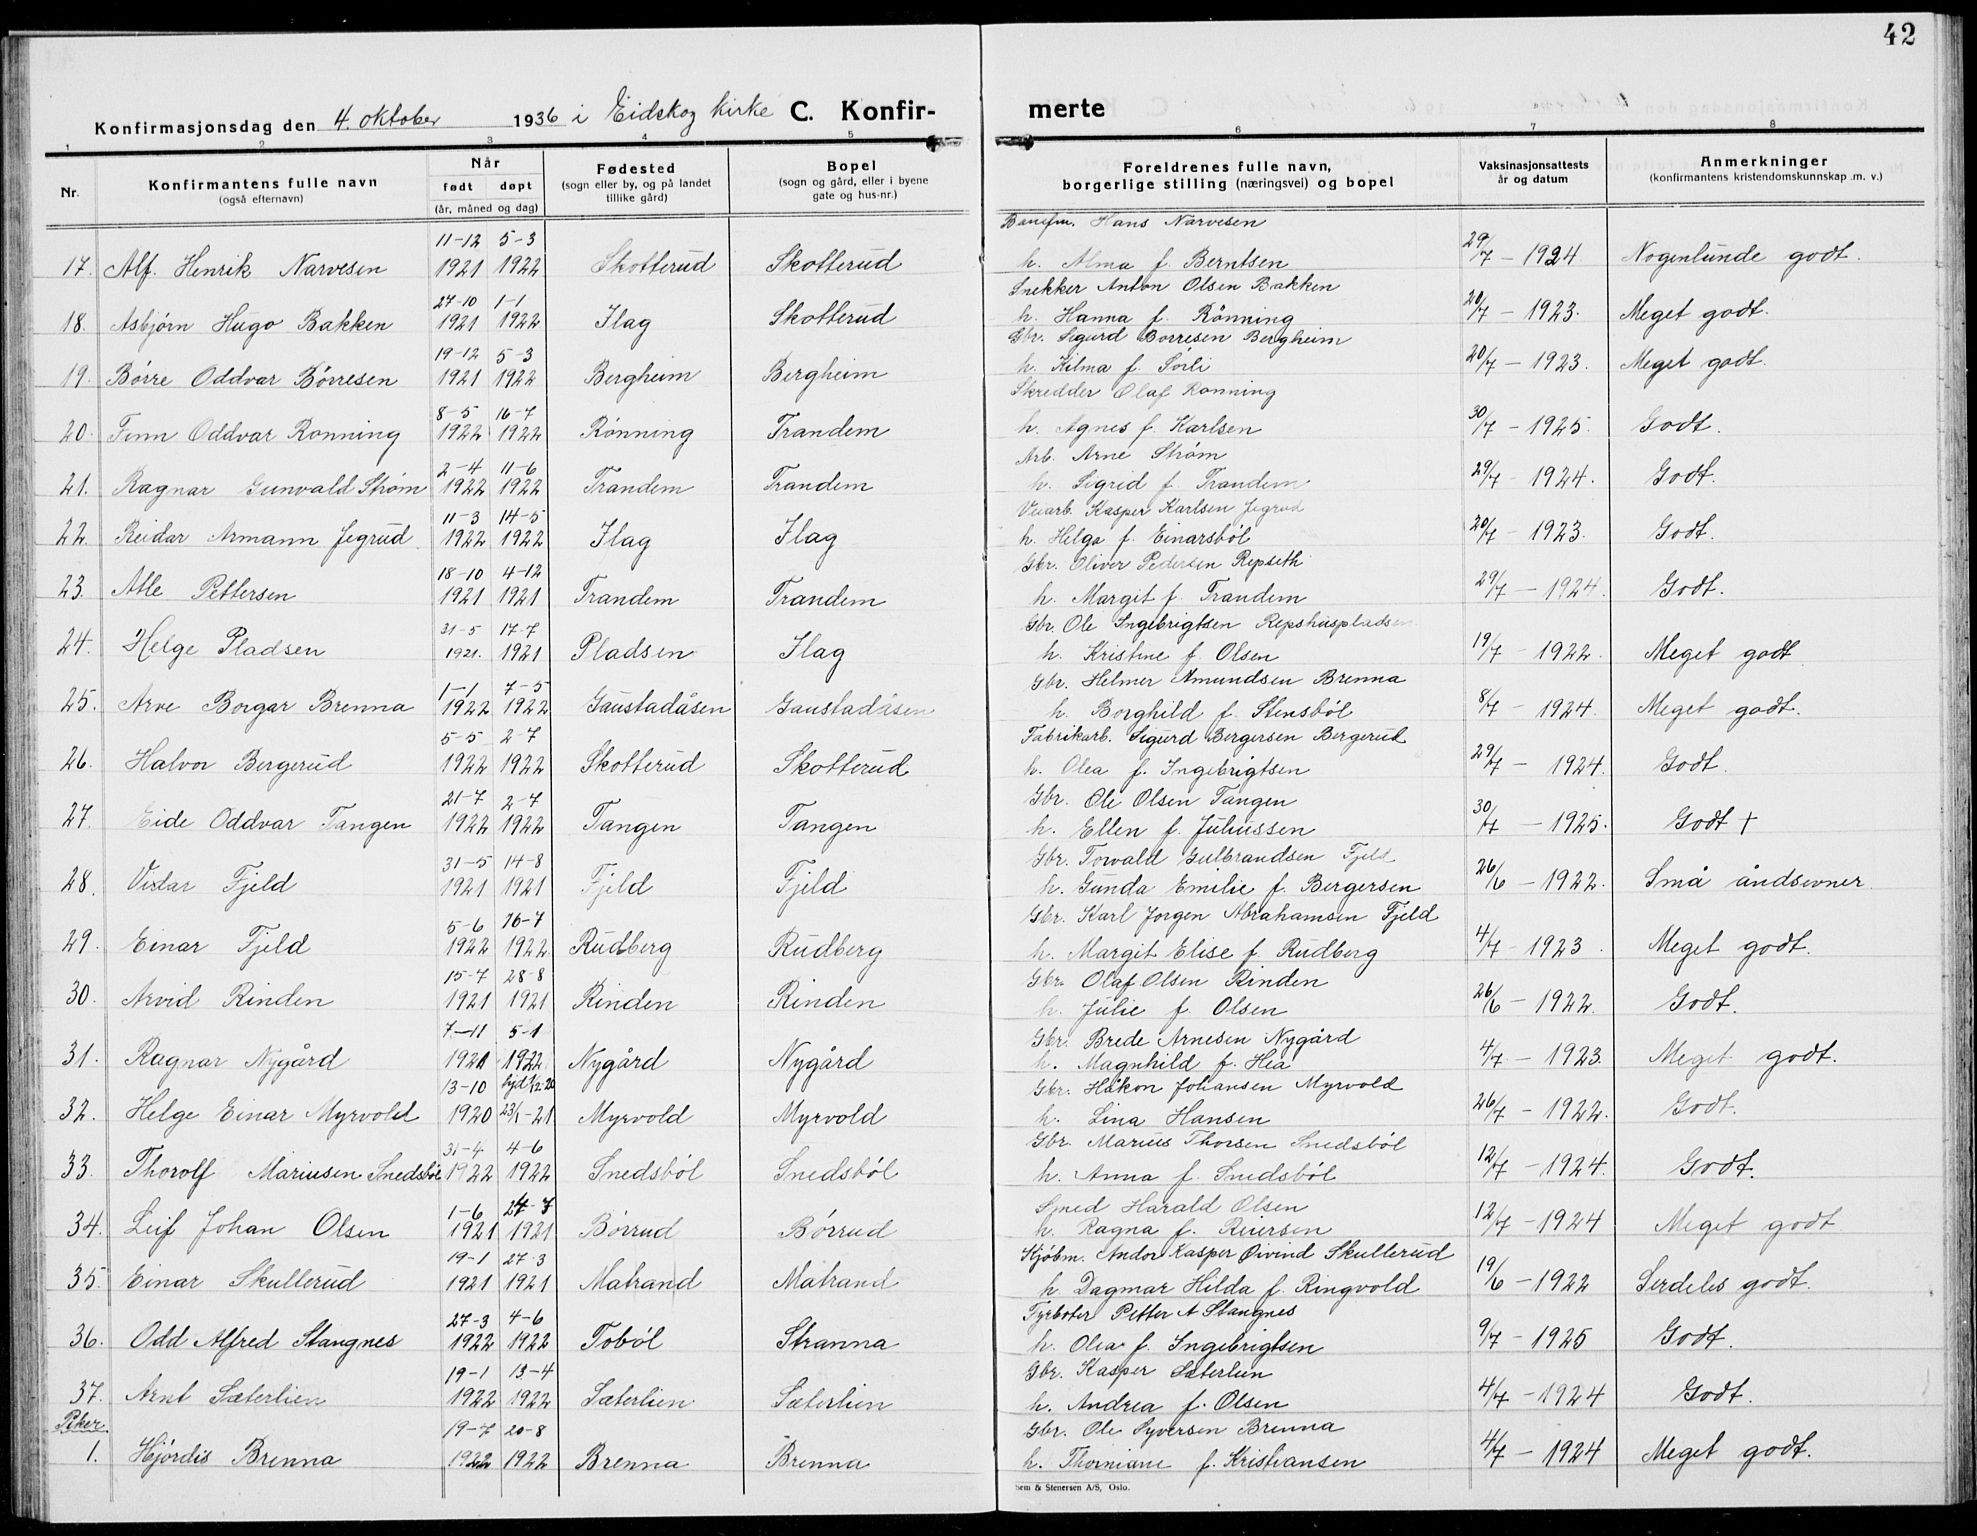 42
Konfirmasjonsdag den 4. oktober 1936 i Eidskog kirke C. Konfir-merte
1 2 3 4 5 6 7 8
Nr. Konfirmantens fulle navn (også efternavn) Når født døpt (år, måned og dag) Fødested (sogn eller by, og på landet tillike gård) Bopel (sogn og gård, eller i byene gate og hus-nr.) Foreldrenes fulle navn, borgerlige stilling (næringsvei) og bopel Vaksinasjonsattests år og datum Anmerkninger (konfirmantens kristendomskunnskap m. v.)
11-12 5-3 Banefm. Hans Narvesen
17. Alf Henrik Narvesen 1921 1922 Skotterud Skotterud h. Alma f. Berntsen 29/7 - 1924 Nogenlunde godt.
27-10 1-1 Snekker Anton Olsen Bakken
18. Asbjørn Hugo Bakken 1921 1922 Ilag Skotterud h. Hanna f. Rønning 20/7 - 1923. Meget godt.
19-12 5-3 Gbr. Sigurd Borresen Bergheim
19. Børre Oddvar Børresen 1921 1922 Bergheim Bergheim h. Hilma f. Sørli 20/7 - 1923. Meget godt.
8-5 16-7 Skredder Olaf Ronning
20. Finn Oddvar Ronning 1922 1922 Rønning Trandem h. Agnes f. Karlsen 30/7 - 1925. Godt.
2-4 11-6 Arb. Arne Strøm
21. Ragnar Gunvald Strøm 1922 1922 Trandem Trandem h. Sigrid f. Trandem 29/7 - 1924. Godt.
11-3 14-5 Veiarb. Kasper Karlsen Jegrud
22. Reidar Armann Jegrud 1922 1922 Ilag Ilag h. Helga f. Einarsbøl 20/7 - 1923. Godt.
18-10 4-12 Gbr. Oliver Pedersen Repseth
23. Atle Pettersen 1921 1921 Trandem Trandem h. Margit f. Trandem 29/7 - 1924. Godt.
31-5 17-7 Gbr. Ole Ingebrigtsen Repshuspladsen
24. Helge Pladsen 1921. 1921 Pladsen Ilag h. Kristine f. Olsen 19/7 - 1922. Meget godt
1-1 7-5 Gbr. Helmer Amundsen Brenna
25. Arve Borgar Brenna 1922 1922 Gaustadåsen Gaustadåsen h. Borghild f. Stensbøl 8/7 - 1924. Meget godt.
5-5 2-7 Fabrikarb. Sigurd Bergersen Bergerud
26. Halvor Bergerud 1922 1922 Skotterud Skotterud h. Olea f. Ingebrigtsen 29/7 - 1924. Godt.
21-7 2-7 Gbr. Ole Olsen Tangen
27. Eide Oddvar Tangen 1922 1922 Tangen Tangen h. Ellen f. Juliussen 30/7 - 1925. Godt +
31-5 14-8 Gbr. Torvald Gulbrandsen Fjeld
28. Vidar Fjeld 1921 1921 Fjeld Fjeld h. Gunda Emilie f. Bergersen 26/6 - 1922. Små åndsevner.
5-6 16-7 Gbr. Karl Jorgen Abrahamsen Fjeld
29. Einar Fjeld 1922 1922 Rudberg Rudberg h. Margit Elise f. Rudberg 4/7 - 1923. Meget godt.
15-7 28-8 Gbr. Olaf Olsen Rinden
30. Arvid Rinden 1921 1921 Rinden Rinden h. Julie f. Olsen 26/6 - 1922. Godt.
7-11 5-1 Gbr. Brede Arnesen Nygård
31. Ragnar Nygård 1921 1922 Nygård Nygård h. Magnhild f. Hea 4/7 - 1923. Meget godt.
13-10 Gbr. Håkon Johansen Myrvold
32. Helge Einar Myrvold 1920 23/1-21 Myrvold Myrvold h. Lina Hansen 26/7 - 1922. Godt.
31-4 4-6 Gbr. Marius Thorsen Snedsbøl
33. Thorolf Mariusen Snedsbøl 1922 1922 Snedsbøl Snedsbøl h. Anna f. Snedsbøl 12/7 - 1924. Godt.
1-6 24-7 Smed Harald Olsen
34. Leif Johan Olsen 1921 1921 Børrud Børrud h. Ragna f. Reiersen 12/7 - 1924 Meget godt
19-1 27-3 Kjøbm. Andor Kasper Øivind Skullerud
35. Einar Skullerud 1921 1921 Matrand Matrand h. Dagmar Hilda f. Ringvold 19/6 - 1922 Serdeles godt.
27-3 4-6 Fyrboter Petter A Stangnes
36. Odd Alfred Stangnes 1922 1922 Tobøl Stranna h. Olea f. Ingebrigtsen 9/7 - 1925 Godt.
19-1 13-4 Gbr. Kasper Sæterlien
37. Arnt Sæterlien 1922 1922 Sæterlien Sæterlien h. Andrea f. Olsen 4/7 - 1924 Godt.
Piker. 19-7 20-8 Gbr. Ole Syversen Brenna
1. Hjørdis Brenna 1922 1922 Brenna Brenna h. Thorniane f. Kristiansen 4/7 - 1924 Meget godt.
Sem & Stenersen A/S, Oslo.